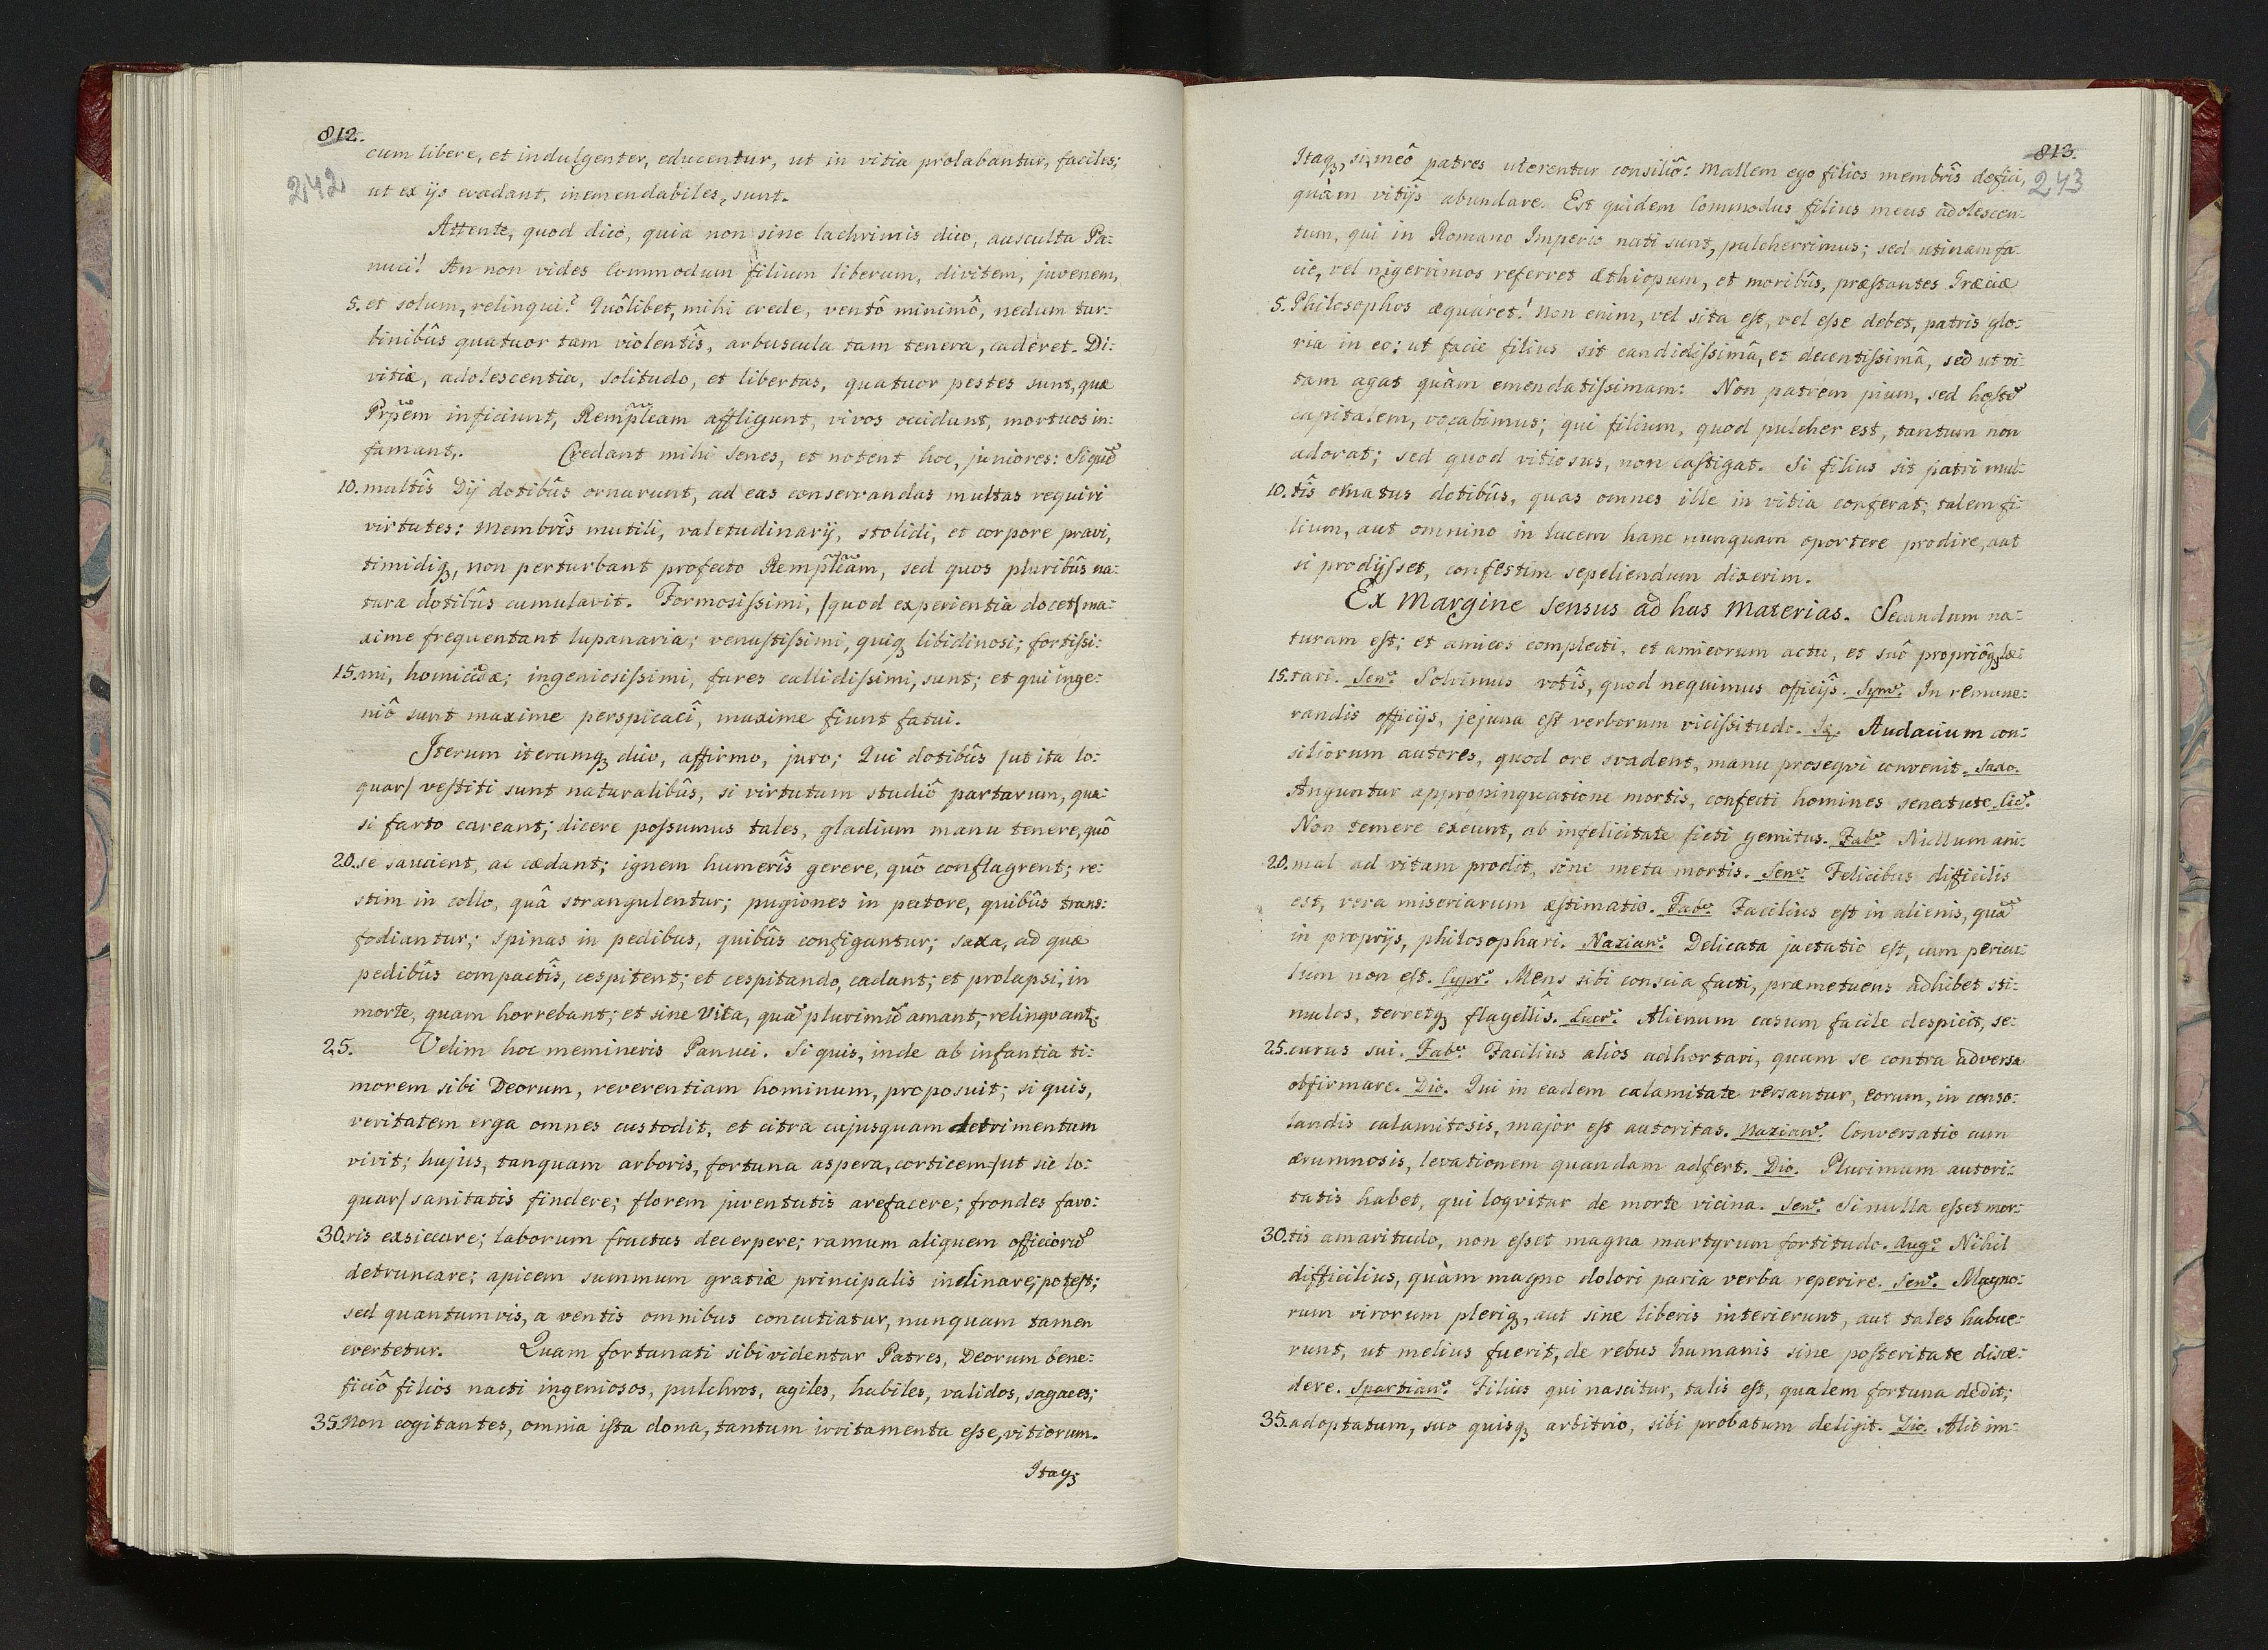 812.
242
cum libere, et indulgenter, educentur, ut in vitia prolabantur, faciles;
ut ex ijs evadant, inemendabiles, sunt.
Attente, quod dico, quia non sine lachrimis dico, ausculta Pa:
nuci! An non vides Commodum filium liberum, divitem, juvenem,
5. et solum, relinqui? Quôlibet, mihi crede, ventô minimô, nedum tur:
binibûs quatuor tam violentîs, arbuscula tam tenera, caderet. Di:
vitiæ, adolescentia, solitudo, et libertas, quatuor pestes sunt, quæ
Prp̃em inficiunt, Remp̃lcam affligunt, vivos occidunt, mortuos in:
famant. Credant mihi senes, et notent hoc, juniores: Si quẽ
10. multîs Dij dotibûs ornarunt, ad eas conservandas multas requiri
virtutes: Membrîs mutili, valetudinarij, stolidi, et corpore pravi,
timidiqꝫ, non perturbant profecto Remp̃lcam, sed quos pluribûs na:
tura dotibûs cumulavit. Formosiſsimi, /quod experientia docet/ ma:
xime frequentant lupanaria; venuſtiſsimi, quiqꝫ libidinosi; fortiſsi:
15. mi, homicidæ; ingeniosiſsimi, fures callidiſsimi, sunt; et qui inge:
niô sunt maxime perspicacî, maxime fiunt fatui.
Iterum iterumqꝫ dico, affirmo, juro; Qui dotibûs /ut ita lo:
quar/ veſtiti sunt naturalibûs, si virtutum studiô partarum, qua:
si farto careant; dicere poſsumus tales, gladium manu tenere, quô
20. se saucient, ac cædant; ignem humerîs gerere, quô conflagrent; re:
stim in collo, quâ strangulentur; pugiones in pectore, quibûs trans:
fodiantur; spinas in pedibus, quibûs configantur; saxa, ad quæ
pedibûs compactîs, cespitent; et cespitando, cadant; et prolapsi, in
morte, quam horrebant; et sine vita, quã plurimũ amant, relinquant.
25. Velim hoc memineris Panuci. Si quis, inde ab infantia ti:
morem sibi Deorum, reverentiam hominum, proposuit; si quis,
veritatem erga omnes custodit, et citra cujusquam detrimentum
vivit; hujus, tanquam arboris, fortuna aspera, corticem /ut sic lo:
quar/ sanitatis findere; florem juventutis arefacere; frondes favo:
30. ris exsiccare; laborum fructus decerpere; ramum aliquem officiorũ
detruncare; apicem summum gratiæ principalis inclinare; poteſt;
sed quantumvis, a ventis omnibus concutiatur, nunquam tamen
evertetur. Quam fortunati sibi videntur Patres, Deorum bene:
ficiô filios nacti ingeniosos, pulchros, agiles, habiles, validos, sagaces;
35. Non cogitantes, omnia iſta dona, tantum irritamenta eſse, vitiorum.
Itaqꝫ
813.
243
Itaqꝫ, si, meô patres uterentur consiliô: Mallem ego filios membrîs defici,
quàm vitijs abundare. Est quidem Commodus filius meus adolescen:
tum, qui in Romano Imperio nati sunt, pulcherrimus; sed utinam fa:
cie, vel nigerrimos referret æthiopum, et moribûs, præſtantes Græciæ
5. Philosophos æquaret! Non enim, vel sita eſt, vel eſse debet, patris glo:
ria in eo: ut facie filius sit candidiſsimâ, et decentiſsimâ, sed ut vi:
tam agat quàm emendatiſsimam: Non patrem pium, sed hoſtẽ
capitalem, vocabimus; qui filium, quod pulcher est, tantum non
adorat; sed quod vitiosus, non caſtigat. Si filius sit patri mul:
10. tîs ornatus dotibûs, quas omnes ille in vitia conferat; talem fi:
lium, aut omnino in lucem hanc nunquam oportere prodire, aut
si prodijſset, confestim sepeliendum dixerim.
Ex Margine sensus ad has Materias. Secundum na:
turam eſt; et amicos complecti, et amicorum actu, et suô propriôqꝫ læ:
15. tari. Sen. Solvimus votîs, quod nequimus officijs. Sym. In remune:
randis officijs, jejuna eſt verborum viciſsitudo. Id. Audacium con:
siliorum autores, quod ore svadent, manu prosequi convenit. Saxo.
Anguntur appropinquatione mortis, confecti homines senectute. Cic.
Non temere exeunt, ab infelicitate ficti gemitus. Fab. Nullum ani:
20. mal ad vitam prodit, sine metu mortis. Sen. Felicibus difficilis
est, vera miseriarum æſtimatio. Fab. Facilius eſt in alienis, quã
in proprijs, philosophari. Nazian. Delicata jactatio eſt, cum pericu:
lum non eſt. Cypr. Mens sibi conscia facti, præmetuens adhibet sti:
mulos, terretqꝫ flagellîs. Lucr. Alienum casum facile despicit, se:
25. curus sui. Fab. Facilius alios adhortari, quam se contra adversa
obfirmare. Dio. Qui in eadem calamitate versantur, eorum, in conso:
landis calamitosis, major eſt autoritas. Nazian. Conversatio cum
ærumnosis, levationem quandam adfert. Dio. Plurimum autori:
tatis habet, qui loqvitur de morte vicina. Sen. Si nulla eſset mor:
30. tis amaritudo, non eſset magna martyrum fortitudo. Aug. Nihil
difficilius, quàm magno dolori paria verba reperire. Sen. Magno:
rum virorum pleriqꝫ, aut sine liberis interierunt, aut tales habue:
runt, ut melius fuerit, de rebus humanis sine poſteritate disce:
dere. Spartian. Filius qui nascitur, talis eſt, qualem fortuna dedit;
35. adoptatum, suo quisqꝫ arbitrio, sibi probatum deligit. Dio. Alit im: